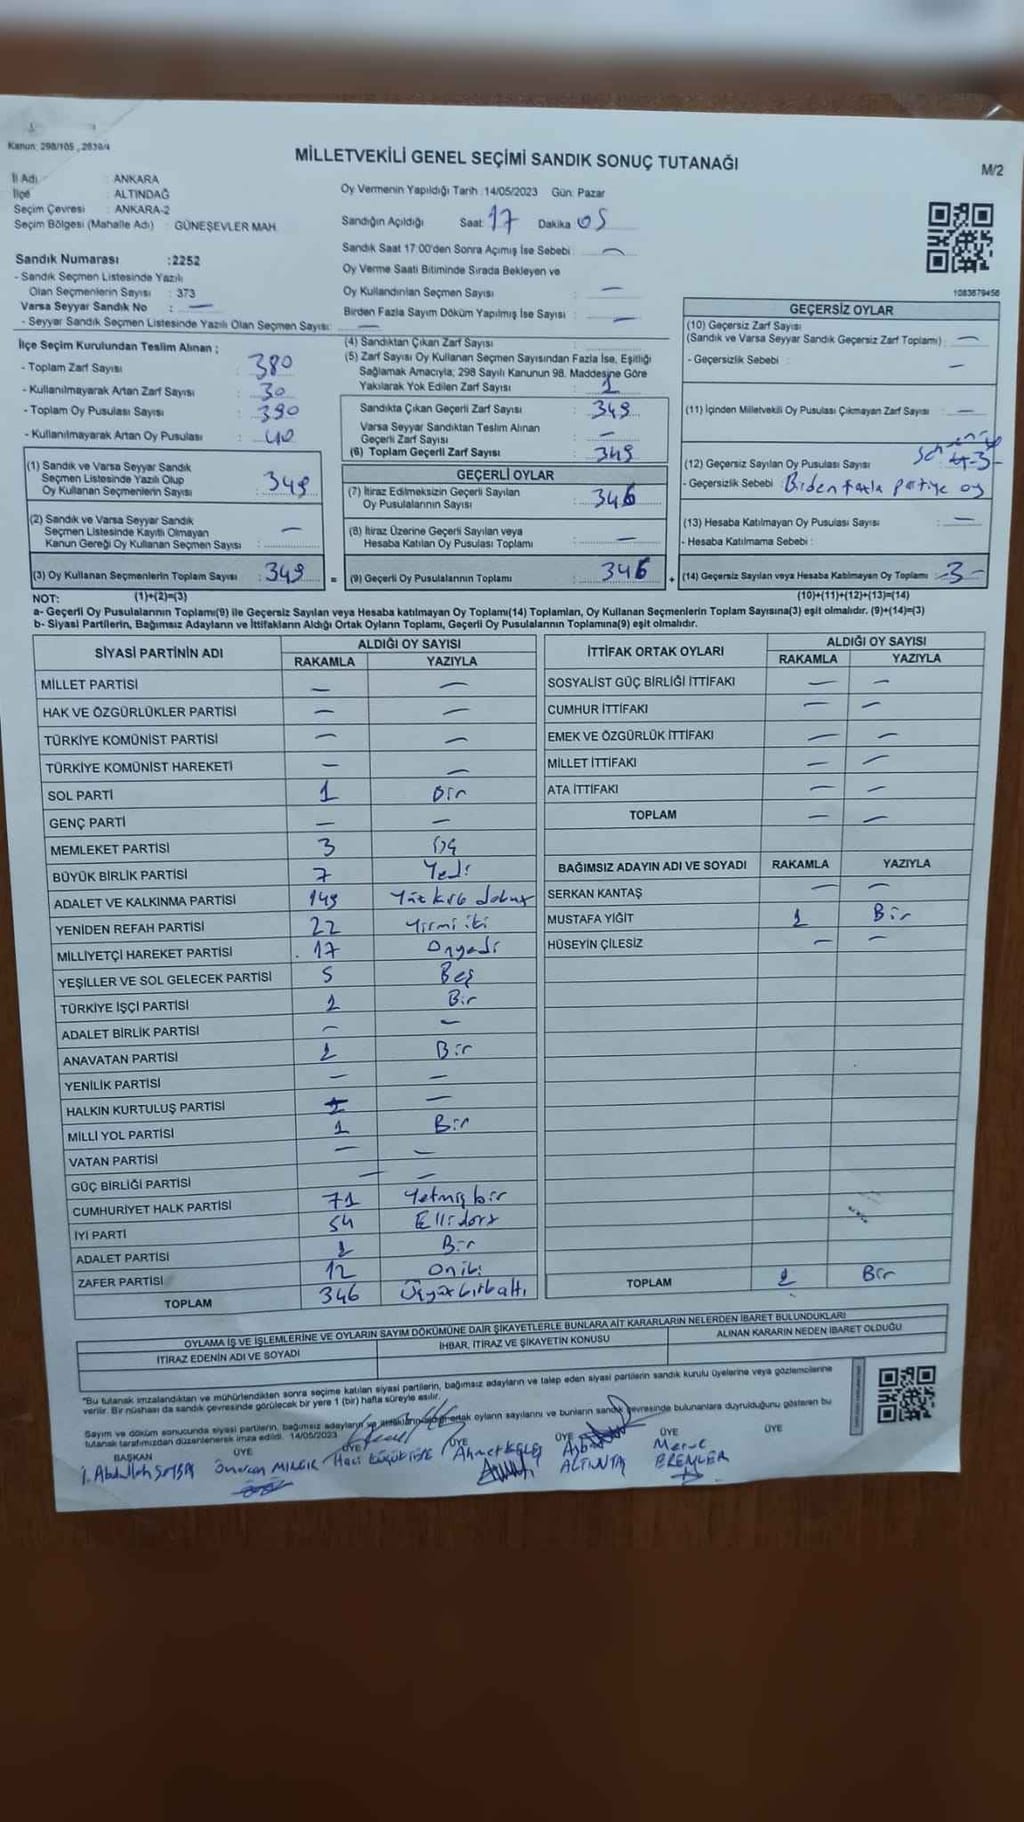 Kanun: 298/105 , 2839/4
MİLLETVEKİLİ GENEL SEÇİMİ SANDIK SONUÇ TUTANAĞI
M/2
İl Adı : ANKARA
İlçe : ALTINDAĞ
Seçim Çevresi : ANKARA-2
Seçim Bölgesi (Mahalle Adı) : GÜNEŞEVLER MAH.
Oy Vermenin Yapıldığı Tarih : 14/05/2023 Gün: Pazar
Sandığın Açıldığı Saat: 17 Dakika 05
Sandık Saat 17:00'den Sonra Açımış İse Sebebi : —
Oy Verme Saati Bitiminde Sırada Bekleyen ve
Oy Kullandırılan Seçmen Sayısı : —
Birden Fazla Sayım Döküm Yapılmış İse Sayısı : —
Sandık Numarası :2252
- Sandık Seçmen Listesinde Yazılı
Olan Seçmenlerin Sayısı : 373
Varsa Seyyar Sandık No : —
- Seyyar Sandık Seçmen Listesinde Yazılı Olan Seçmen Sayısı: —
1083679458
İlçe Seçim Kurulundan Teslim Alınan ;
- Toplam Zarf Sayısı : 380
- Kullanılmayarak Artan Zarf Sayısı : 30
- Toplam Oy Pusulası Sayısı : 390
- Kullanılmayarak Artan Oy Pusulası : 40
(1) Sandık ve Varsa Seyyar Sandık
Seçmen Listesinde Yazılı Olup
Oy Kullanan Seçmenlerin Sayısı : 349
(2) Sandık ve Varsa Seyyar Sandık
Seçmen Listesinde Kayıtlı Olmayan
Kanun Gereği Oy Kullanan Seçmen Sayısı : —
(3) Oy Kullanan Seçmenlerin Toplam Sayısı : 349
(4) Sandıktan Çıkan Zarf Sayısı :
(5) Zarf Sayısı Oy Kullanan Seçmen Sayısından Fazla İse, Eşitliği
Sağlamak Amacıyla; 298 Sayılı Kanunun 98. Maddesine Göre
Yakılarak Yok Edilen Zarf Sayısı : 1
Sandıkta Çıkan Geçerli Zarf Sayısı : 349
Varsa Seyyar Sandıktan Teslim Alınan
Geçerli Zarf Sayısı : —
(6) Toplam Geçerli Zarf Sayısı : 349
GEÇERLİ OYLAR
(7) İtiraz Edilmeksizin Geçerli Sayılan
Oy Pusulalarının Sayısı : 346
(8) İtiraz Üzerine Geçerli Sayılan veya
Hesaba Katılan Oy Pusulası Toplamı : —
= (9) Geçerli Oy Pusulalarının Toplamı : 346
GEÇERSİZ OYLAR
(10) Geçersiz Zarf Sayısı
(Sandık ve Varsa Seyyar Sandık Geçersiz Zarf Toplamı) : —
- Geçersizlik Sebebi : —
(11) İçinden Milletvekili Oy Pusulası Çıkmayan Zarf Sayısı : —
(12) Geçersiz Sayılan Oy Pusulası Sayısı : -3-
- Geçersizlik Sebebi : Birden fazla partiye oy
(13) Hesaba Katılmayan Oy Pusulası Sayısı : —
- Hesaba Katılmama Sebebi :
+ (14) Geçersiz Sayılan veya Hesaba Katılmayan Oy Toplamı : -3-
NOT: (1)+(2)=(3)
(10)+(11)+(12)+(13)=(14)
a- Geçerli Oy Pusulalarının Toplamı(9) ile Geçersiz Sayılan veya Hesaba katılmayan Oy Toplamı(14) Toplamları, Oy Kullanan Seçmenlerin Toplam Sayısına(3) eşit olmalıdır. (9)+(14)=(3)
b- Siyasi Partilerin, Bağımsız Adayların ve İttifakların Aldığı Ortak Oyların Toplamı, Geçerli Oy Pusulalarının Toplamına(9) eşit olmalıdır.
SİYASİ PARTİNİN ADI
ALDIĞI OY SAYISI
RAKAMLA YAZIYLA
MİLLET PARTİSİ — —
HAK VE ÖZGÜRLÜKLER PARTİSİ — —
TÜRKİYE KOMÜNİST PARTİSİ — —
TÜRKİYE KOMÜNİST HAREKETİ — —
SOL PARTİ 1 Bir
GENÇ PARTİ — —
MEMLEKET PARTİSİ 3 Üç
BÜYÜK BİRLİK PARTİSİ 7 Yedi
ADALET VE KALKINMA PARTİSİ 149 Yüz kırk dokuz
YENİDEN REFAH PARTİSİ 22 Yirmi iki
MİLLİYETÇİ HAREKET PARTİSİ 17 Onyedi
YEŞİLLER VE SOL GELECEK PARTİSİ 5 Beş
TÜRKİYE İŞÇİ PARTİSİ 1 Bir
ADALET BİRLİK PARTİSİ — —
ANAVATAN PARTİSİ 1 Bir
YENİLİK PARTİSİ — —
HALKIN KURTULUŞ PARTİSİ —
MİLLİ YOL PARTİSİ 1 Bir
VATAN PARTİSİ — —
GÜÇ BİRLİĞİ PARTİSİ — —
CUMHURİYET HALK PARTİSİ 71 Yetmiş bir
İYİ PARTİ 54 Ellidört
ADALET PARTİSİ 1 Bir
ZAFER PARTİSİ 12 Oniki
TOPLAM 346 Üçyüzkırkaltı
İTTİFAK ORTAK OYLARI
ALDIĞI OY SAYISI
RAKAMLA YAZIYLA
SOSYALİST GÜÇ BİRLİĞİ İTTİFAKI — —
CUMHUR İTTİFAKI — —
EMEK VE ÖZGÜRLÜK İTTİFAKI — —
MİLLET İTTİFAKI — —
ATA İTTİFAKI — —
TOPLAM — —
BAĞIMSIZ ADAYIN ADI VE SOYADI RAKAMLA YAZIYLA
SERKAN KANTAŞ — —
MUSTAFA YİĞİT 1 Bir
HÜSEYİN ÇİLESİZ — —
TOPLAM 1 Bir
OYLAMA İŞ VE İŞLEMLERİNE VE OYLARIN SAYIM DÖKÜMÜNE DAİR ŞİKAYETLERLE BUNLARA AİT KARARLARIN NELERDEN İBARET BULUNDUKLARI
İTİRAZ EDENİN ADI VE SOYADI İHBAR, İTİRAZ VE ŞİKAYETİN KONUSU ALINAN KARARIN NEDEN İBARET OLDUĞU
"Bu tutanak imzalandıktan ve mühürlendikten sonra seçime katılan siyasi partilerin, bağımsız adayların ve talep eden siyasi partilerin sandık kurulu üyelerine veya gözlemcilerine
verilir. Bir nüshası da sandık çevresinde görülecek bir yere 1 (bir) hafta süreyle asılır.
Sayım ve döküm sonucunda siyasi partilerin, bağımsız adayların ve ittifakların aldığı ortak oyların sayılarını ve bunların sandık çevresinde bulunanlara duyrulduğunu gösteren bu
tutanak tarafımızdan düzenlenerek imza edildi. 14/05/2023
BAŞKAN ÜYE ÜYE ÜYE ÜYE ÜYE ÜYE
Abdullah Ahmet KELEŞ Merve